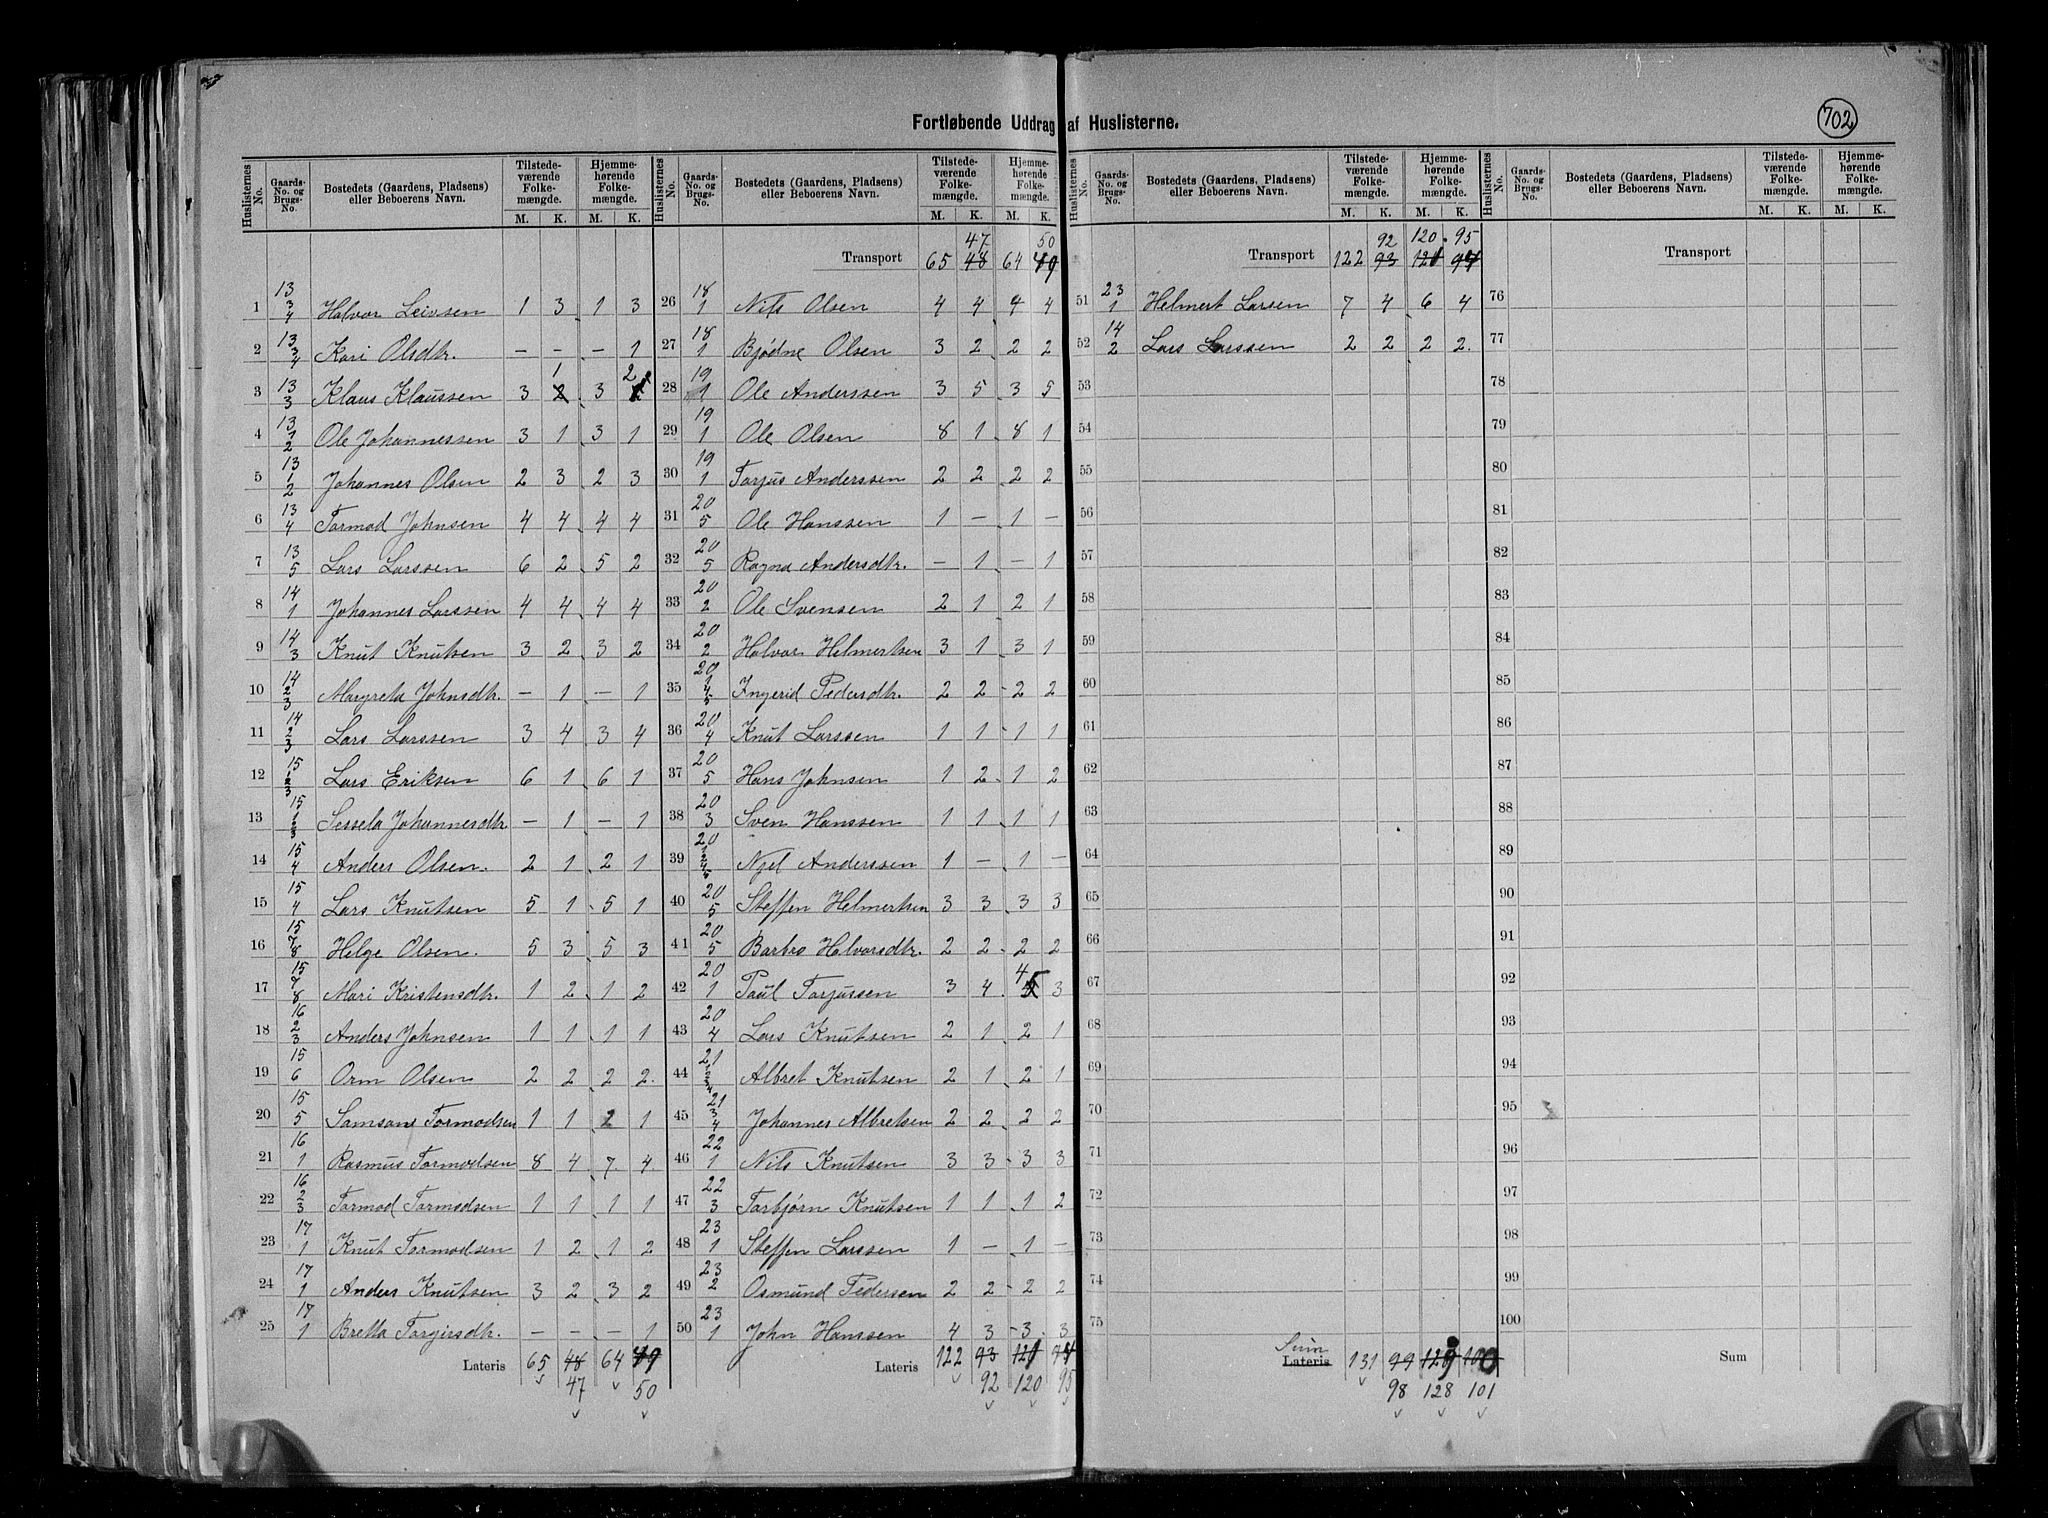 702
Fortløbende Uddrag af Huslisterne.
Huslisternes No. | Gaards-No. og Brugs-No. | Bostedets (Gaardens, Pladsens) eller Beboerens Navn. | Tilstedeværende Folkemængde. M. K. | Hjemmehørende Folkemængde. M. K.
Transport 65 47 48 64 50 49
Transport 122 92 93 120 121 95 94
Transport
1 13 3 4 Halvor Leivsen 1 3 1 3
2 13 3 4 Kari Olsdtr. — — — 1
3 13 3 Klaus Klaussen 3 1 2 3 2
4 13 1 2 Ole Johannessen 3 1 3 1
5 13 1 2 Johannes Olsen 2 3 2 3
6 13 4 Tarmod Johnsen 4 4 4 4
7 13 5 Lars Larssen 6 2 5 2
8 14 1 Johannes Larssen 4 4 4 4
9 14 3 Knut Knutsen 3 2 3 2
10 14 2 3 Margreta Johnsdtr. — 1 — 1
11 14 2 3 Lars Larssen 3 4 3 4
12 15 1 2 3 Lars Eriksen 6 1 6 1
13 15 1 2 3 Sessela Johannesdtr. — 1 — 1
14 15 4 Anders Olsen. 2 1 2 1
15 15 4 Lars Knutsen 5 1 5 1
16 15 7 8 Helge Olsen. 5 3 5 3
17 15 7 8 Mari Kristensdtr. 1 2 1 2
18 16 2 3 Anders Johnsen 1 1 1 1
19 15 6 Orm Olsen 2 2 2 2.
20 15 5 Samsons Tormodsen 1 1 2 1
21 16 1 Rasmus Tormodsen 8 4 7 4
22 16 2 3 Tarmod Tarmodsen 1 1 1 1
23 17 1 Knut Tormodsen 1 2 1 2
24 17 1 Anders Knutsen 3 2 3 2
25 17 1 Bretta Targirsdtr. — — — 1
Lateris 65 48 64 49
47 50
26 18 1 Nils Olsen 4 4 4 4
27 18 1 Bjødne Olsen 3 2 2 2
28 19 1 Ole Anderssen 3 5 3 5
29 19 1 Ole Olsen 8 1 8 1
30 19 1 Tarjus Anderssen 2 2 2 2
31 20 5 Ole Hanssen 1 — 1 —
32 20 5 Ragna Andersdtr. — 1 — 1
33 20 2 Ole Svensen 2 1 2 1
34 20 2 Halvor Helmertsen 3 1 3 1
35 20 1 4 5 Ingerid Pedersdtr. 2 2 2 2
36 20 4 Knut Larssen 1 1 1 1
37 20 5 Hans Johnsen 1 2 1 2
38 20 3 Sven Hanssen 1 1 1 1
39 20 1 2 4 5 Njel Anderssen 1 — 1 —
40 20 5 Steffen Helmertsen 3 3 3 3
41 20 5 Barbro Halvorsdtr. 2 2 2 2
42 20 1 Paul Tarjussen 3 4 4 5 3
43 20 4 Lars Knutsen 2 1 2 1
44 21 1 2 3 4 Albret Knutsen 2 1 2 1
45 21 3 4 Johannes Albretsen 2 2 2 2
46 22 1 Nils Knutsen 3 3 3 3
47 22 3 Tarbjørn Knutsen 1 1 1 2
48 23 1 Steffen Larssen 1 — 1 —
49 23 2 Osmund Pedersen 2 2 2 2
50 23 1 John Hanssen 4 3 3 3
Lateris 122 93 121 94
92 120 95
51 23 1 Helmert Larsen 7 4 6 4
52 14 2 Lars Larssen 2 2 2 2.
53
54
55
56
57
58
59
60
61
62
63
64
65
66
67
68
69
70
71
72
73
74
75
Sum Lateris 131 99 129 100
98 128 101
76
77
78
79
80
81
82
83
84
85
86
87
88
89
90
91
92
93
94
95
96
97
98
99
100
Sum